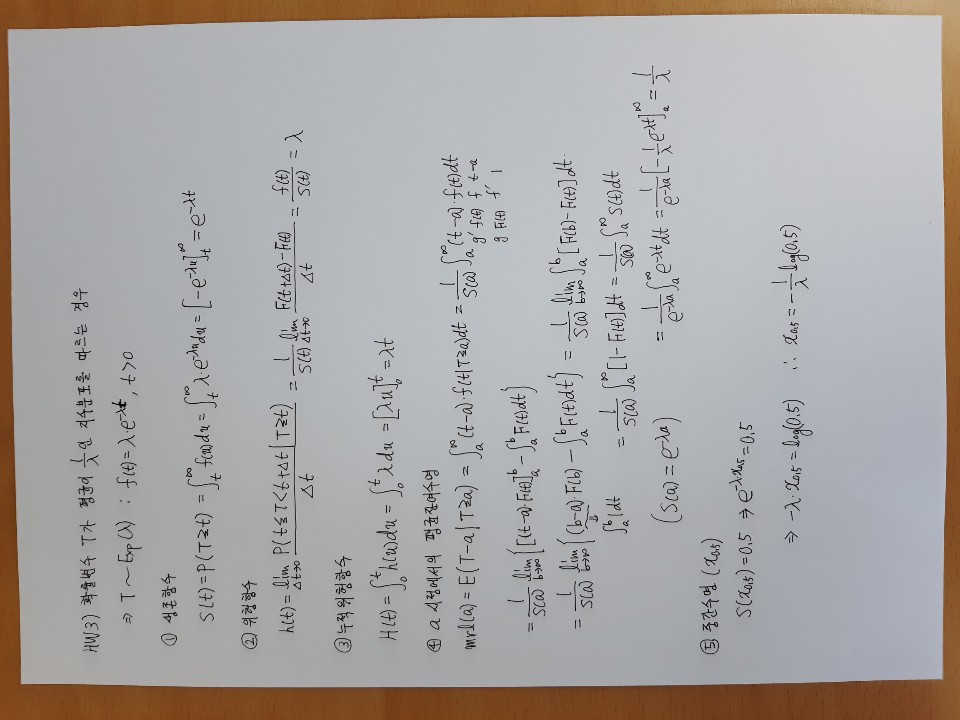 HW3) 확률변수 T가 평균이 1/λ인 지수분포를 따르는 경우
⇒ T ~ Exp(λ) : f(t) = λ·e^{-λt}, t>0
① 생존함수
S(t) = P(T≥t) = ∫_t^∞ f(u)du = ∫_t^∞ λ·e^{-λu}du = [-e^{-λu}]_t^∞ = e^{-λt}
② 위험함수
h(t) = lim_{Δt→0} P(t≤T<t+Δt | T≥t)/Δt = 1/S(t) lim_{Δt→0} (F(t+Δt)-F(t))/Δt = f(t)/S(t) = λ
③ 누적위험함수
H(t) = ∫_0^t h(u)du = ∫_0^t λdu = [λu]_0^t = λt
④ a 시점에서의 평균잔여수명
mrl(a) = E(T-a | T≥a) = ∫_a^∞ (t-a)·f(t|T≥a)dt = 1/S(a) ∫_a^∞ (t-a)·f(t)dt
g' f(t) f t-a
g F(t) f' 1
= 1/S(a) lim_{b→∞} {[(t-a)·F(t)]_a^b - ∫_a^b F(t)dt}
= 1/S(a) lim_{b→∞} {(b-a)·F(b) - ∫_a^b F(t)dt} = 1/S(a) lim_{b→∞} ∫_a^b [F(b)-F(t)]dt.
⇓
∫_a^b 1dt = 1/S(a) ∫_a^∞ [1-F(t)]dt = 1/S(a) ∫_a^∞ S(t)dt
(S(a) = e^{-λa}) = 1/e^{-λa} ∫_a^∞ e^{-λt}dt = 1/e^{-λa} [-1/λ e^{-λt}]_a^∞ = 1/λ
⑤ 중간수명 (x_{0.5})
S(x_{0.5}) = 0.5 ⇒ e^{-λ·x_{0.5}} = 0.5
⇒ -λ·x_{0.5} = log(0.5) ∴ x_{0.5} = -1/λ log(0.5)